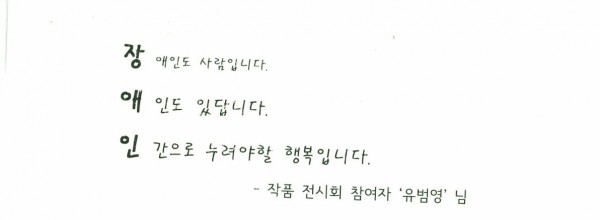 장 애인도 사람입니다.
애 인도 있답니다.
인 간으로 누려야할 행복입니다.
- 작품 전시회 참여자 '유범영' 님